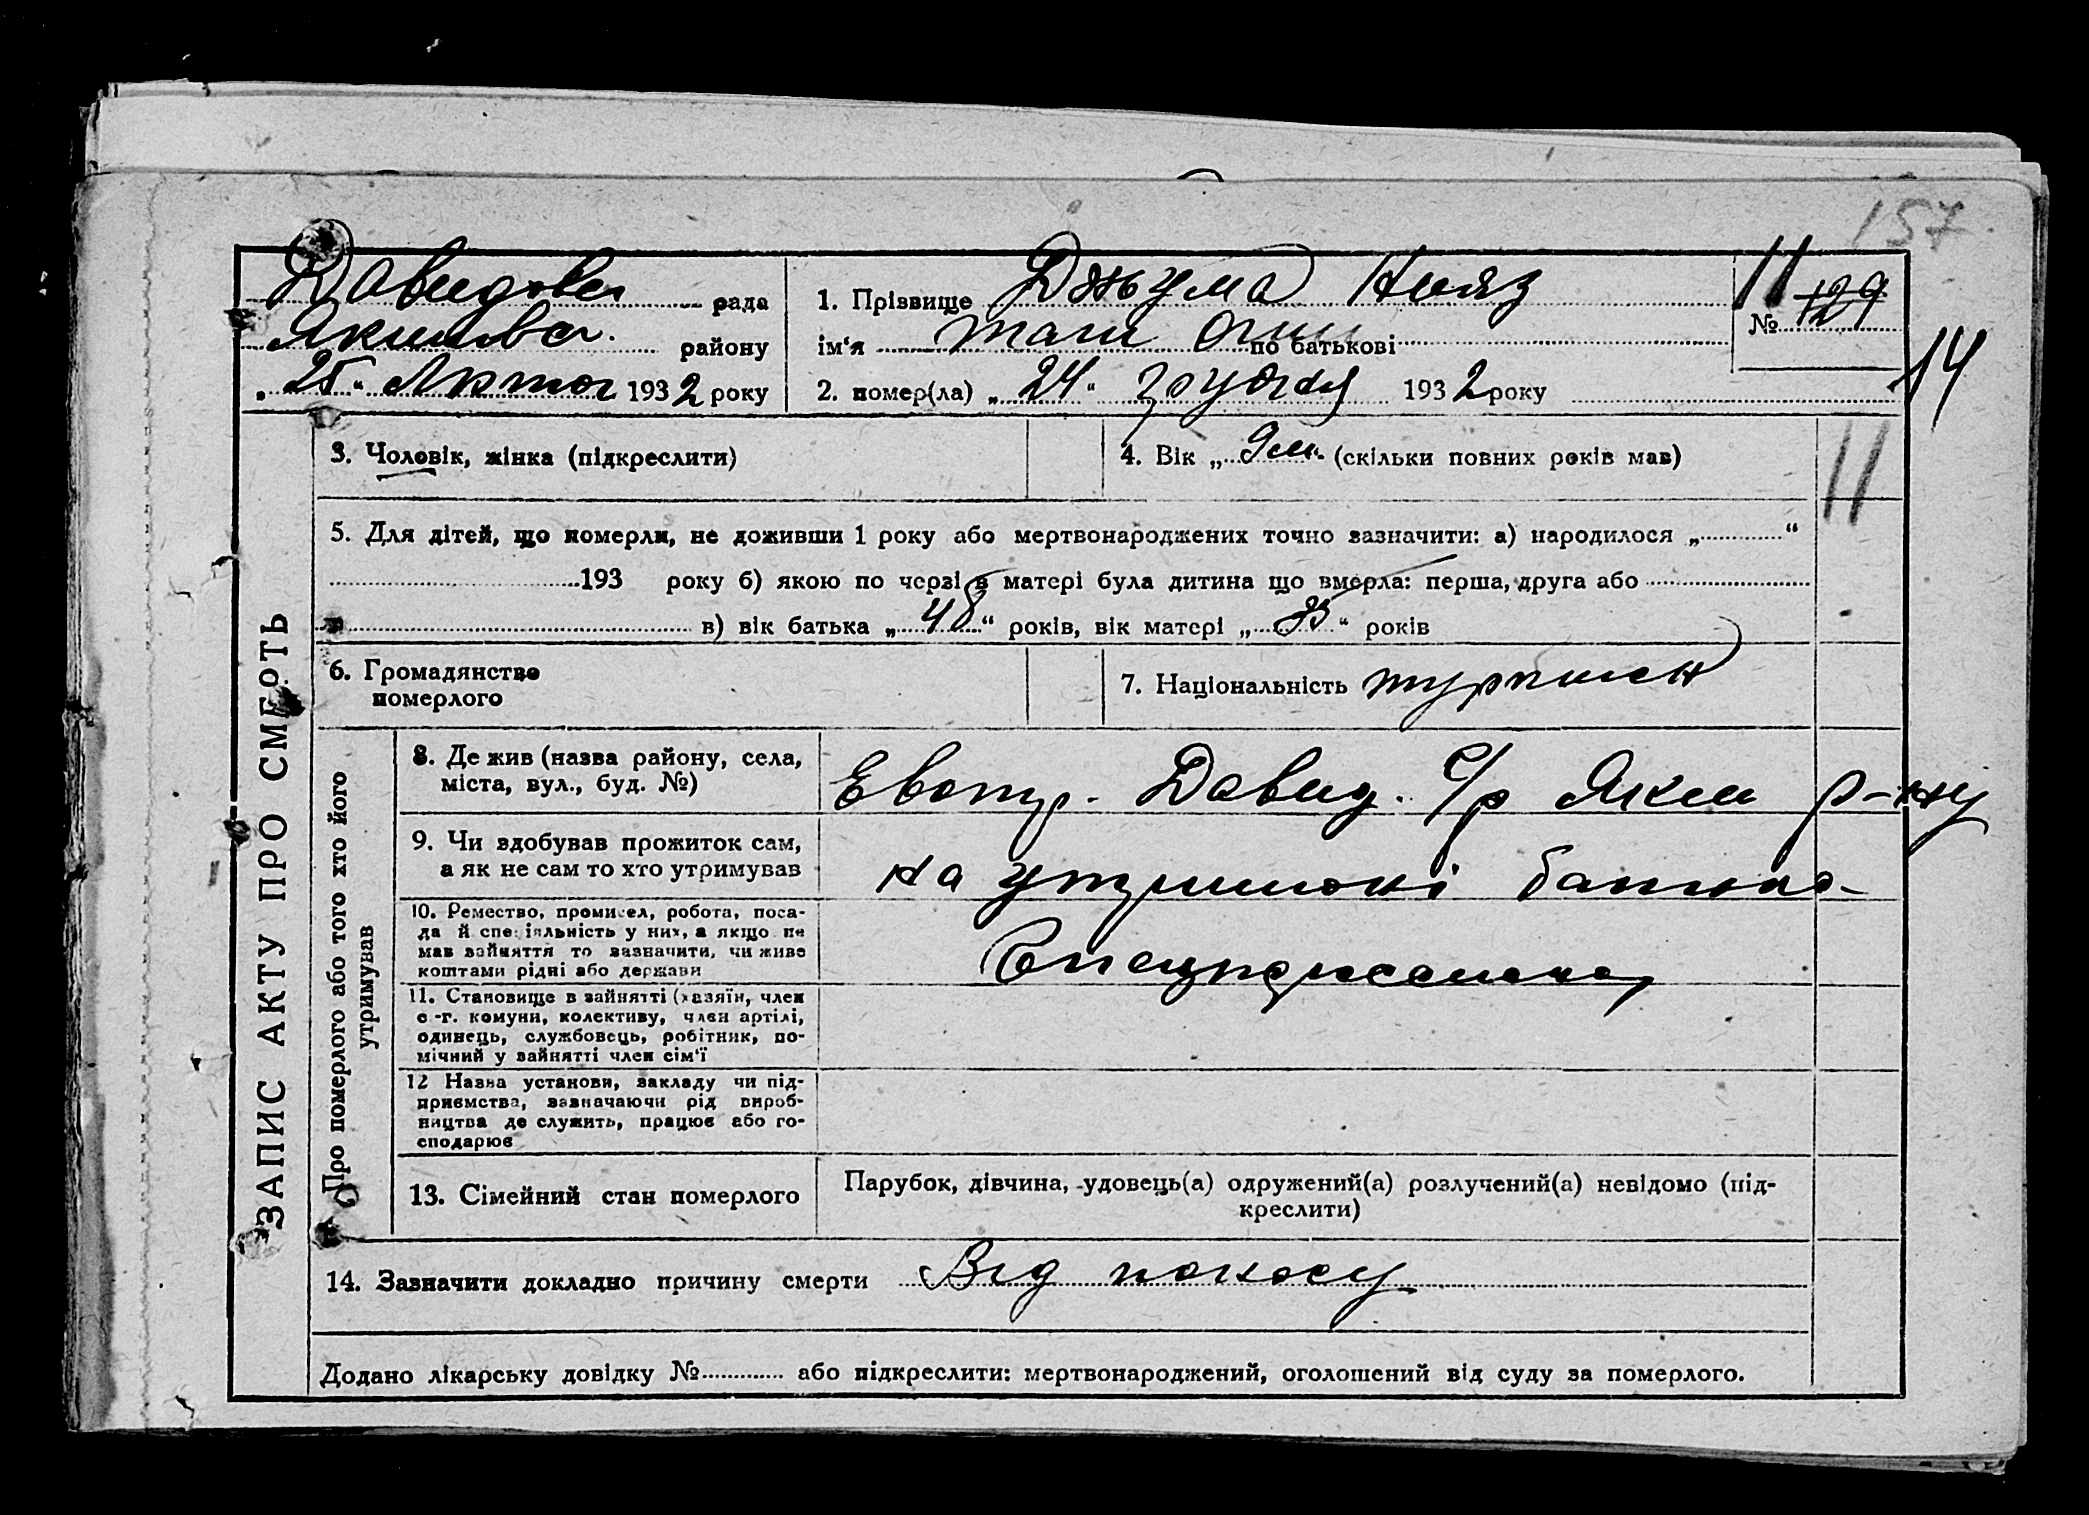 157
Давидовс рада
Якимівск. району
„25“ Лютог 1932 року
1. Прізвище Джума Нияз
ім‘я Таш Огли по батькові
2. помер(ла) „24“ грудня 1932 року
11
№ 129
14
ЗАПИС АКТУ ПРО СМЕРТЬ
3. Чоловік, жінка (підкреслити)
4. Вік „9 м.“ (скільки повних років мав)
11
5. Для дітей, що померли, не доживши 1 року або мертвонароджених точно зазначити: а) народилося „ “
193 року б) якою по черзі в матері була дитина що вмерла: перша, друга або
в) вік батька „48“ років, вік матері „35“ років
6. Громадянство
померлого
7. Національність туркмен
Про померлого або того хто його
утримував
8. Де жив (назва району, села,
міста, вул., буд. №)
Евптр. Давид. С/р Яким р-ну
9. Чи здобував прожиток сам,
а як не сам то хто утримував
на утриманні батька
10. Ремество, промисел, робота, поса-
да й спеціяльність у них, а якщо не
мав зайняття то зазначити, чи живе
коштами рідні або держави
11. Становище в зайнятті (хазяїн, член
с-г. комуни, колективу, член артілі,
одинець, службовець, робітник, по-
мічний у зайнятті член сім‘ї
12 Назва установи, закладу чи під-
приємства, зазначаючи рід вироб-
ництва де служить, працює або го-
сподарює
13. Сімейний стан померлого
Парубок, дівчина, удовець(а) одружений(а) розлучений(а) невідомо (під-
креслити)
14. Зазначити докладно причину смерти Від поносу
Додано лікарську довідку № або підкреслити: мертвонароджений, оголошений від суду за померлого.